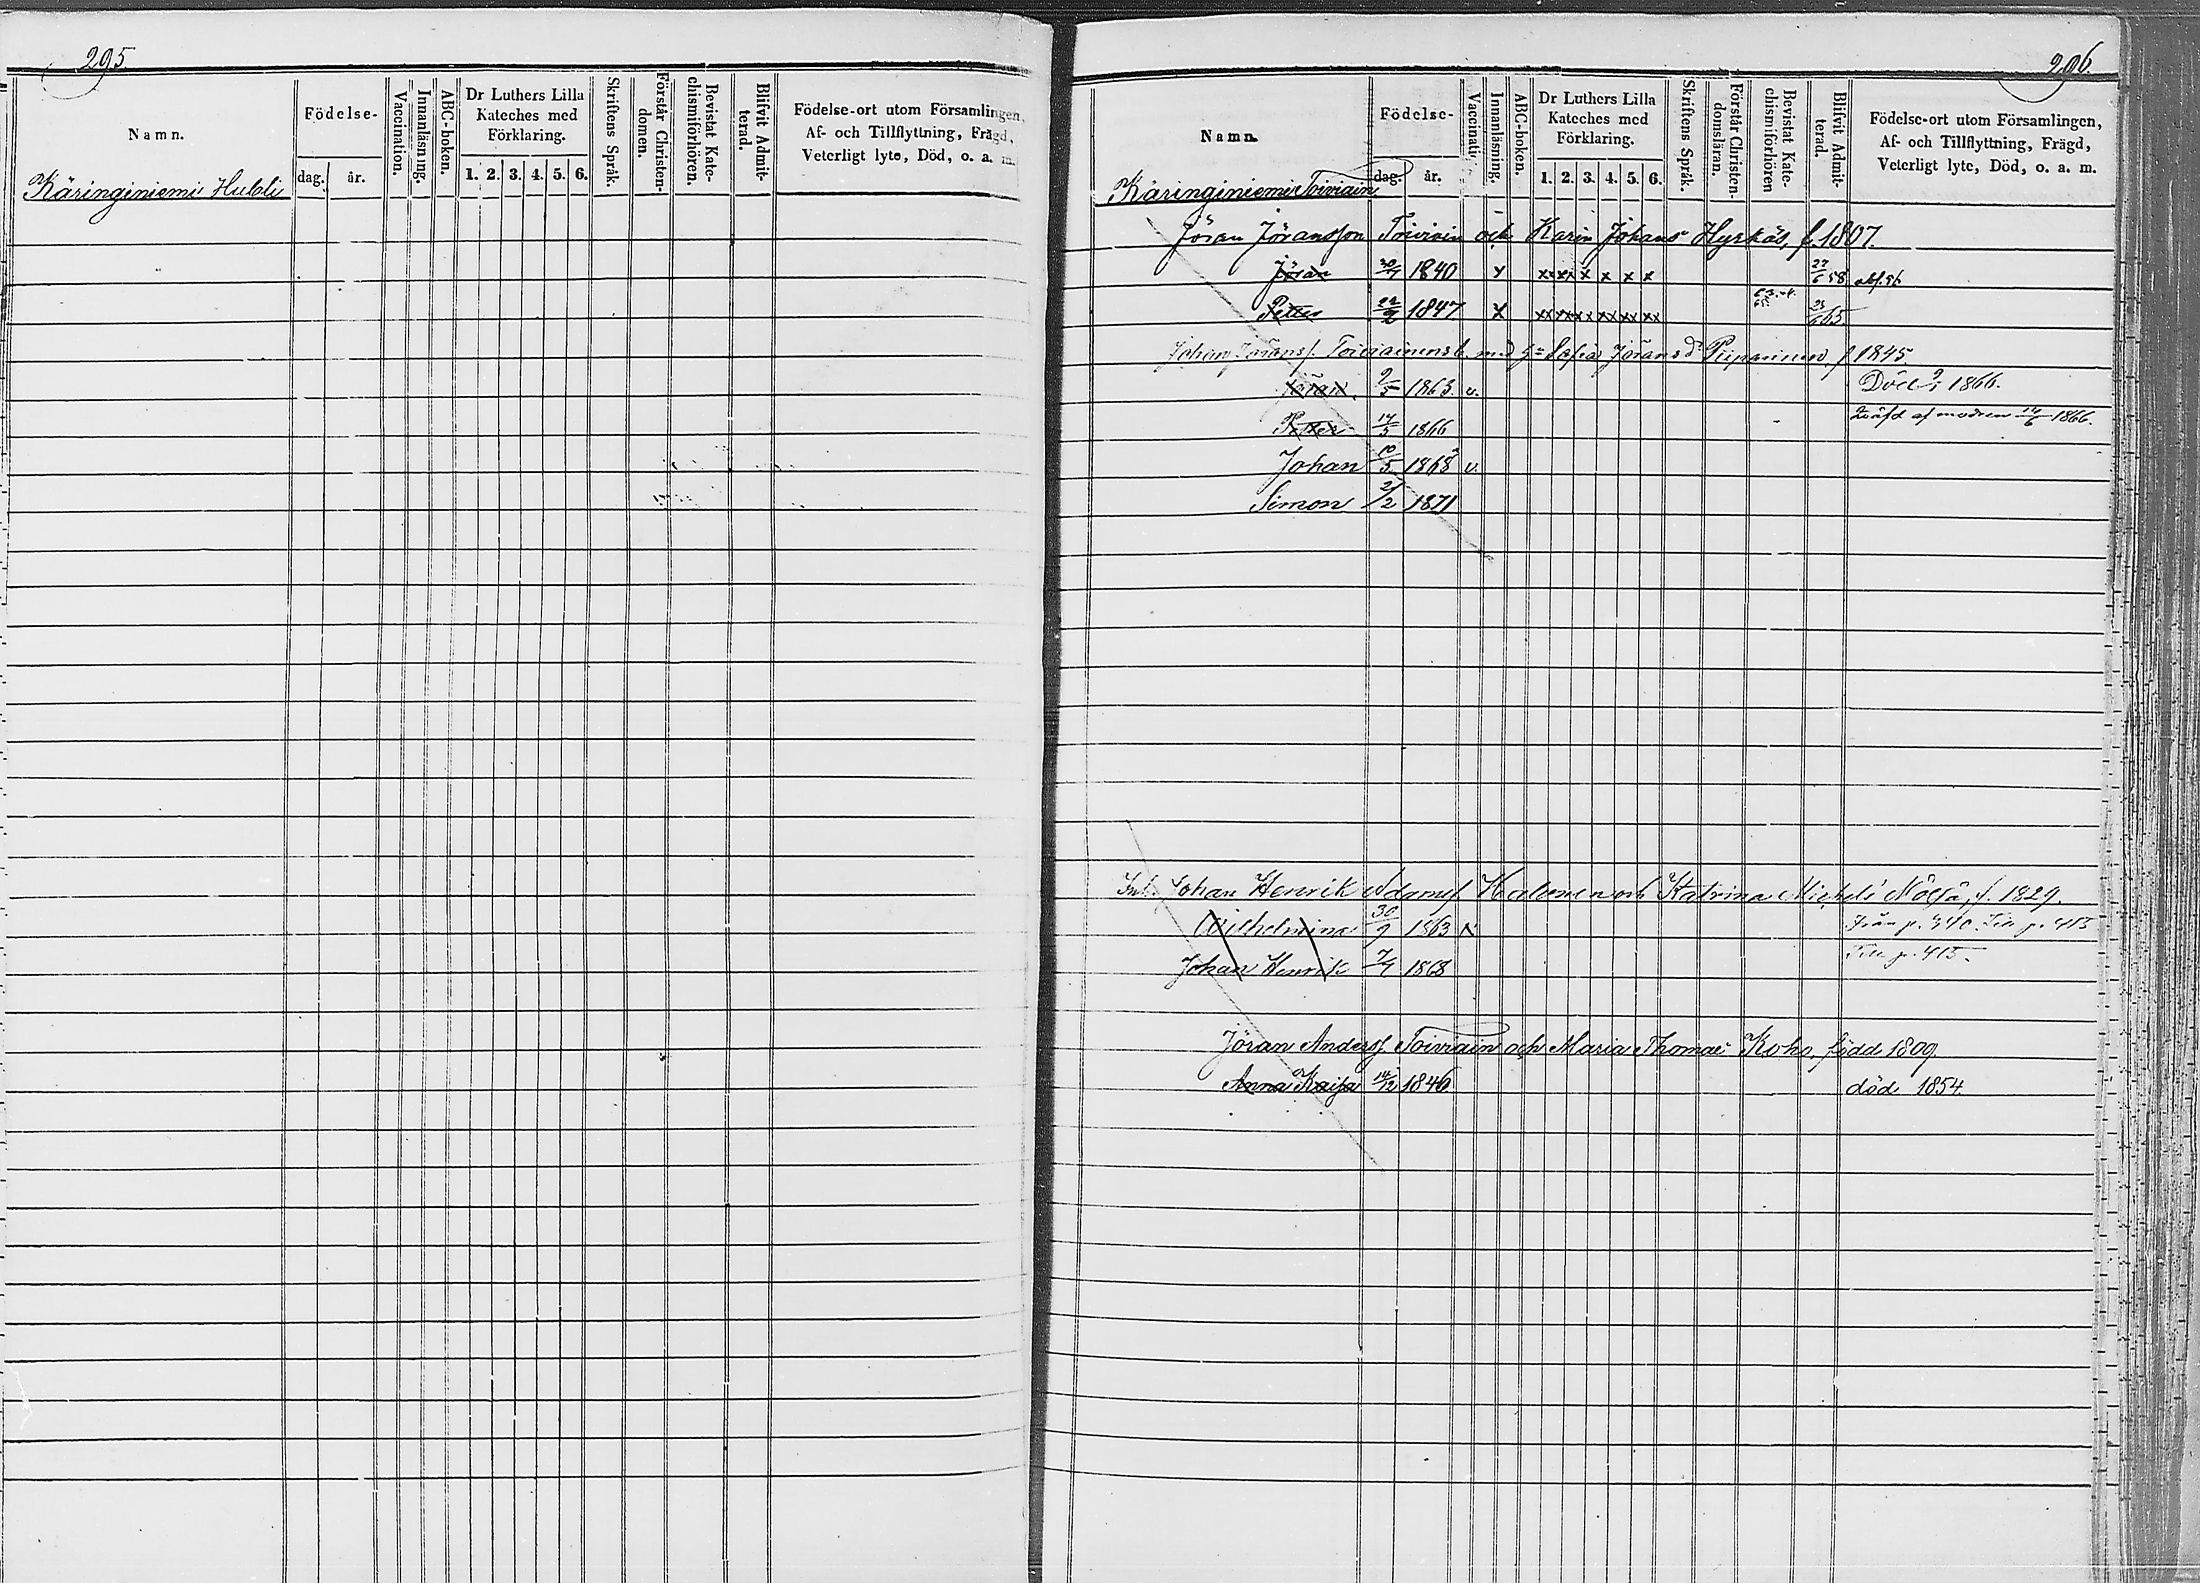 295
Namn.
Födelse-
dag.
år.
Vaccination.
Innanläsning.
ABC-boken.
Dr Luthers Lilla
Kateches med
Förklaring.
1. 2. 3. 4. 5. 6.
Skriftens Språk.
Förstår Christen-
domen.
Bevistat Kate-
chismiförhören.
Blifvit Admit-
terad.
Födelse-ort utom Församlingen,
Af- och Tillflyttning, Frägd,
Veterligt lyte, Död, o. a. m.
Käringiniemi Hubli
296.
Namn.
Födelse-
dag.
år.
Vaccinatio
Innanläsning.
ABC-boken.
Dr Luthers Lilla
Kateches med
Förklaring.
1. 2. 3. 4. 5. 6.
Skriftens Språk.
Förstår Christen-
domsläran.
Bevistat Kate-
chismiförhören
Blifvit Admit-
terad.
Födelse-ort utom Församlingen,
Af- och Tillflyttning, Frägd,
Veterligt lyte, Död, o. a. m.
Käringiniemi Toiviain
Jöran Jöransson Toivivin och Karin Johans Hyrkäs, f. 1807.
Jöran 30/4 1840 x xx xx x x x x 27/6 58
Petter 22/2 1847 x xx xx xx xx xx xx 23/6 65.
Johan Jöransf. Toiviainens b. med h:u Sofia Jöransd:r Piipariinen, f 1845.
Jöran. 9/5 1863. v. Död 1866.
Petter 14/5 1866 qväfd af modren 14/6 1866.
Johan 10/5 1868 v.
Simon 2/2 1871
Inh. Johan Henrik Adamsf. Halonen och Katrina Michels Mölsä, f. 1829.
Wilhelmina 30/9 1863 x Från p. 340. Till p. 415
Johan Henrik 7/4 1868 Till p. 415.
Jöran Andersf Toiviain och Maria Thomae Koho, född 1809.
Anna Kaisa 14/12 1846 död 1854.